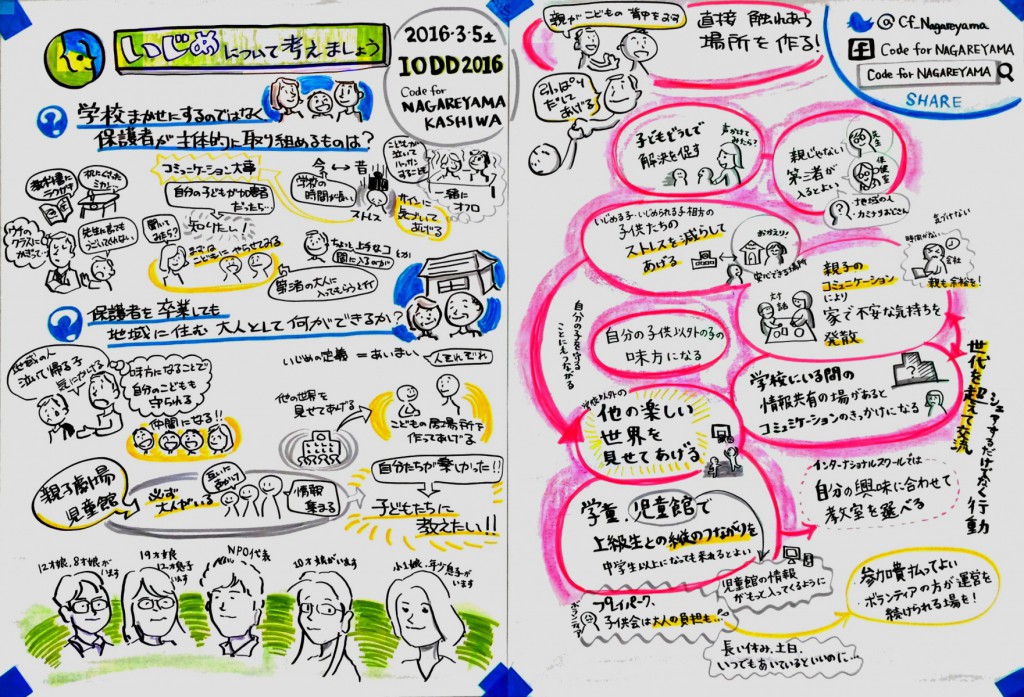 いじめについて考えましょう
2016·3·5土
IODD2016
Code for
NAGAREYAMA
KASHIWA
学校まかせにするのではなく
保護者が主体的に取り組めるものは?
教科書に
ラクガキ
先生に言えて
ウザの
クラスに
コミュニケーション大事
自分の子どもが加害者
だったら…
知りたい!
聞いて
みたら?
まずは
こどもにやらせてみる
今 ↔ 昔
学校の
時間が長い
ストレス
こどもが
泣いて
一緒に
おフロ
サインに
気づいて
あげる
ちょい上の子とか
間に入るのが
第3者の大人に
入ってもらうとか
保護者を卒業しても
地域に住む大人として何ができるか?
地域の人
泣いて帰る子
気にかける
味方になることで
自分のこどもも
守られる
仲間になる!!
いじめの定義=あいまい
それぞれ
他の世界を
見せてあげる
こどもの居場所を
作ってあげる
親子劇場
児童館
必ず
大人がいる
互いに
情報
集まる
自分たちが楽しかった!!
子どもたちに
教えたい!!
12才娘、8才娘が
います
19才娘
12才息子
います
NPO代表
10才娘がいます
小1娘、年少息子が
います
親がこどもの背中をおす
直接触れあう
場所を作る!
引っぱり
だして
あげる
@Cf_Nagareyama
Code for NAGAREYAMA
Code for NAGAREYAMA
SHARE
子どもどうしで
解決を促す
声かけて
みたら?
親じゃない
第三者が
入るとよい
地域の人
・カミナリおじさん
いじめる子・いじめられる子 相方の
子供たちの
ストレスを減らして
あげる
おかえり!
安心できる場所
親子の
コミュニケーション
により
家で不安な気持ちを
発散
対話
時間がない
気づけない
会社
親も余裕を!
自分の子を守る
ことにもつながる
自分の子供以外の子の
味方になる
学校にいる間の
情報共有の場があると
コミュニケーションのきっかけになる
世代を超えて交流
シェアするだけでなく行動
学校以外の
他の楽しい
世界を
見せてあげる
インターナショナルスクールでは
自分の興味に合わせて
教室を選べる
学童、児童館で
上級生との縦のつながりを
中学生以上になっても来れるとよい
児童館の情報
がもっと入ってくるように
ボランティア
プレイパーク、
子供会は大人の負担も…
参加費払ってよい
ボランティアの方が運営を
続けられる場を!
長い休み、土日、
いつでもあいているといいのに…